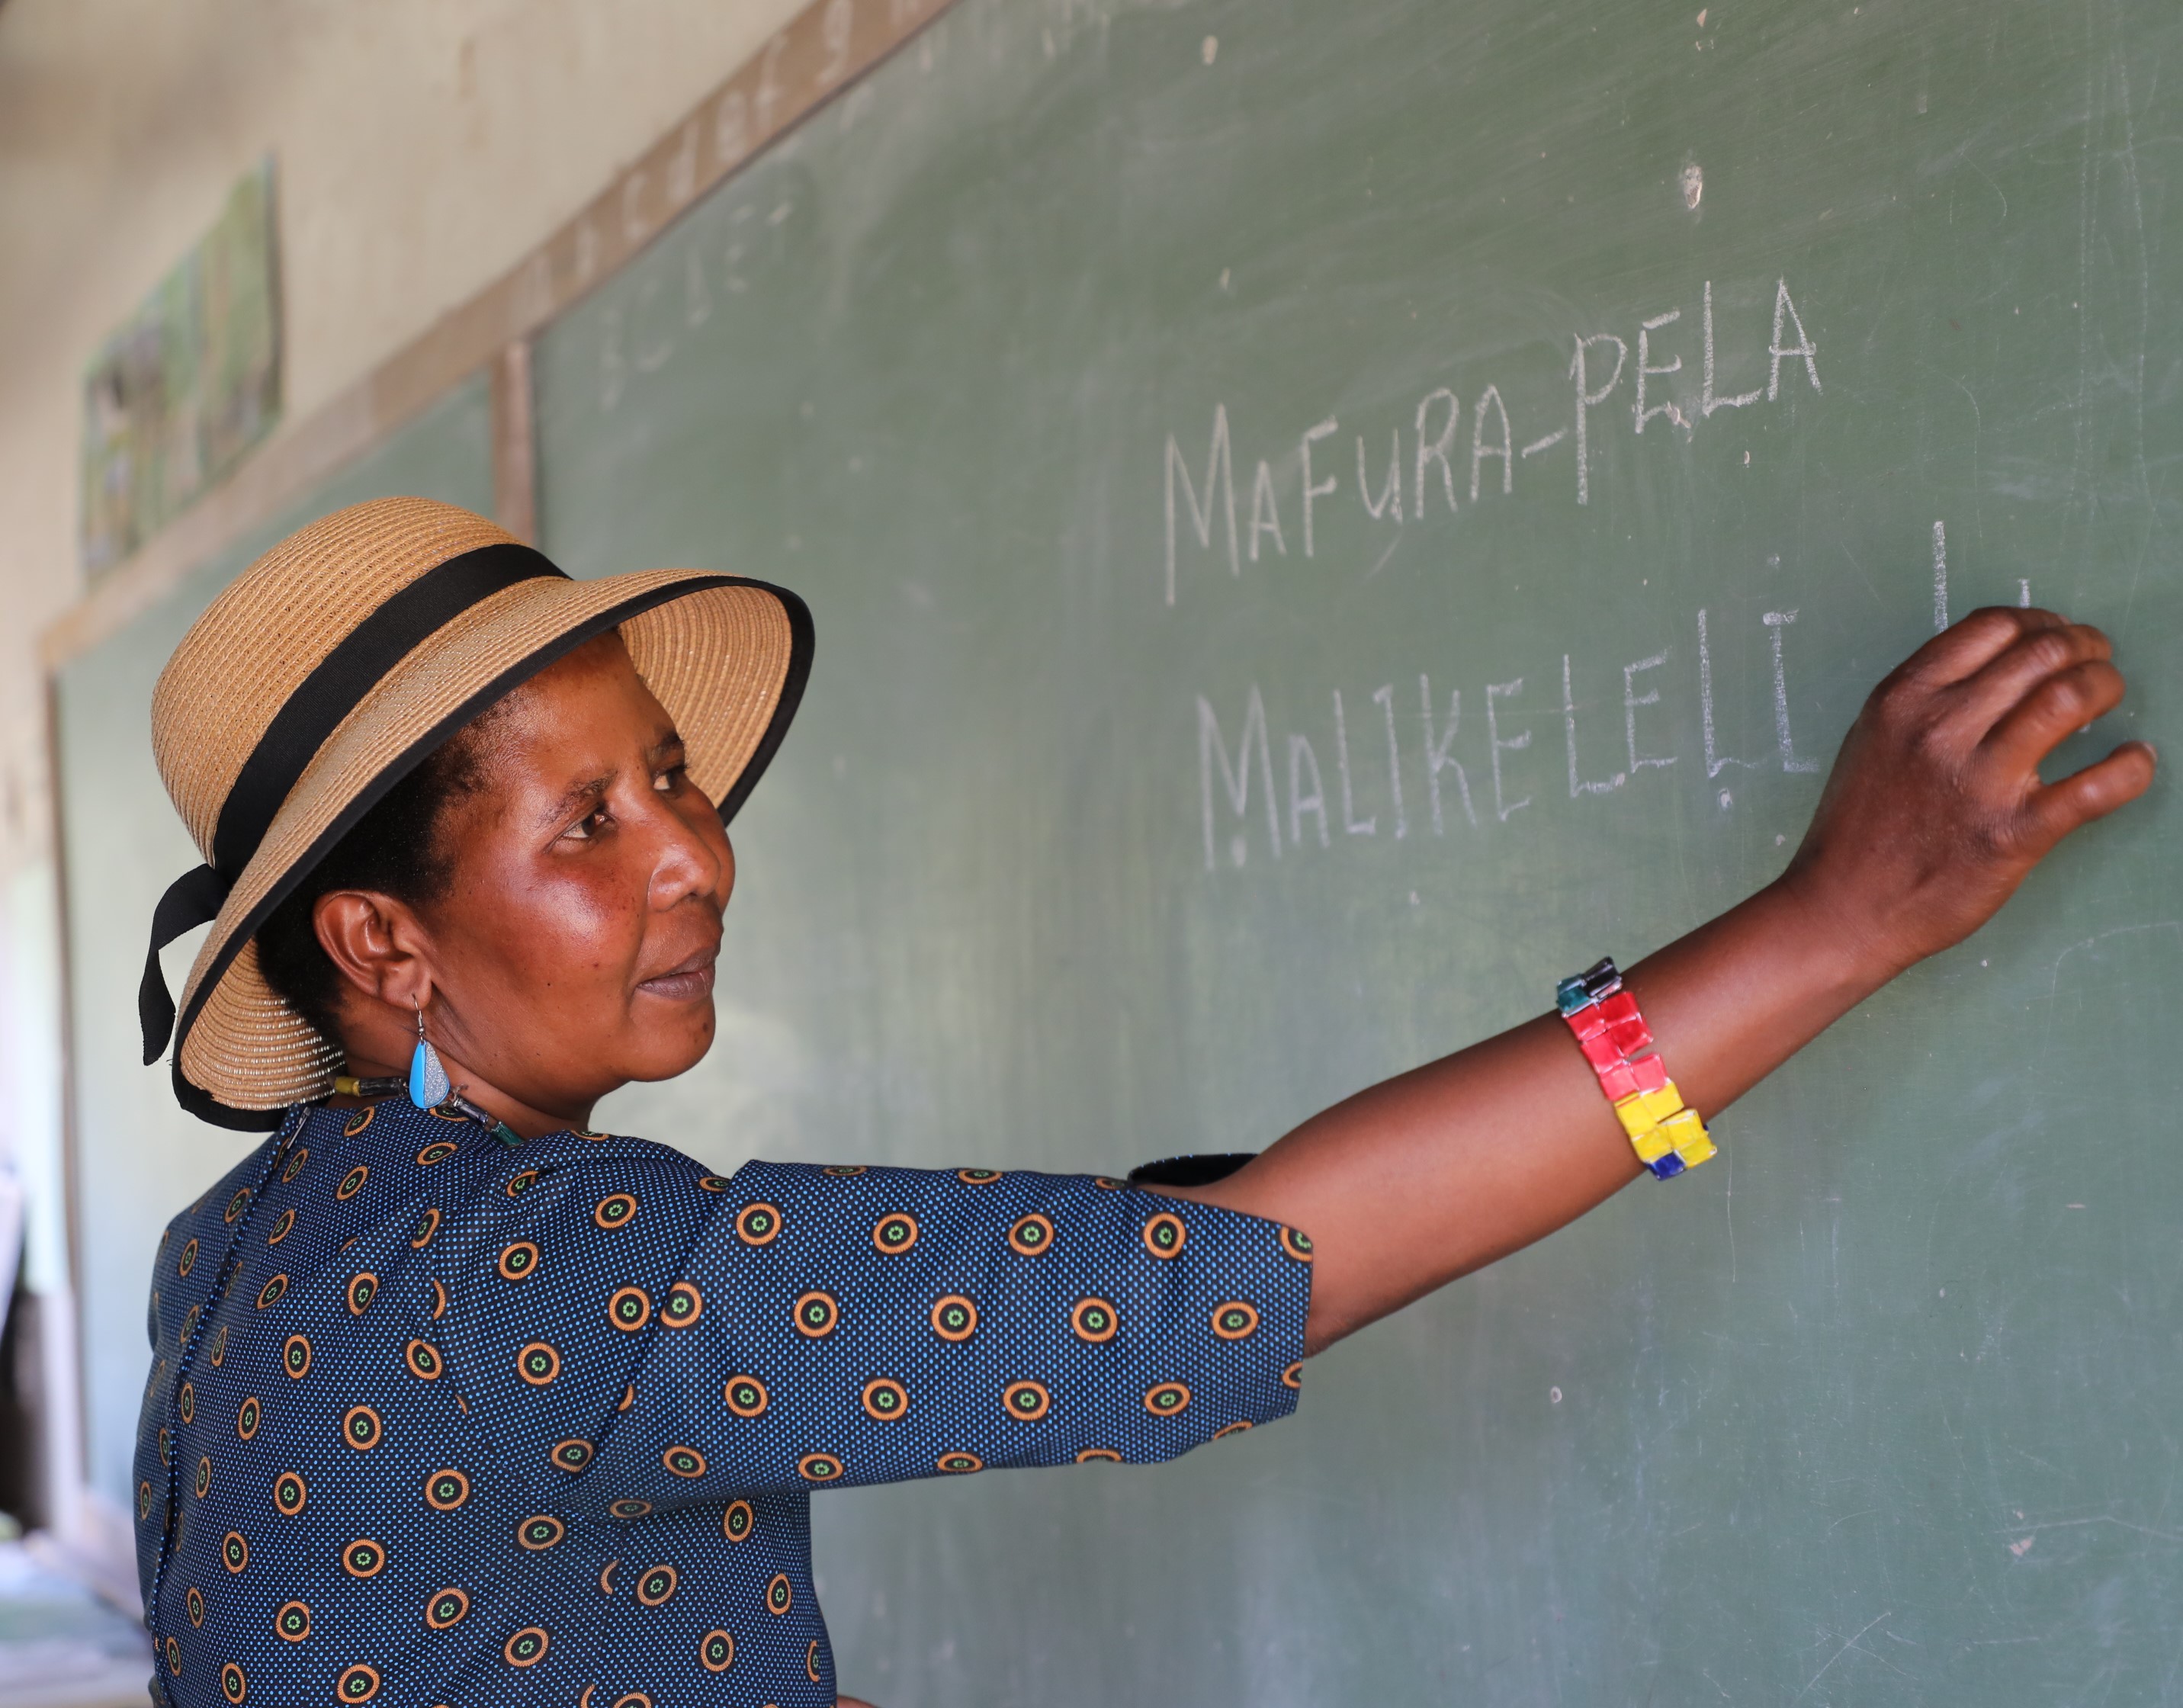 c d e f g
MAFURA-PELA
MALIKELELI